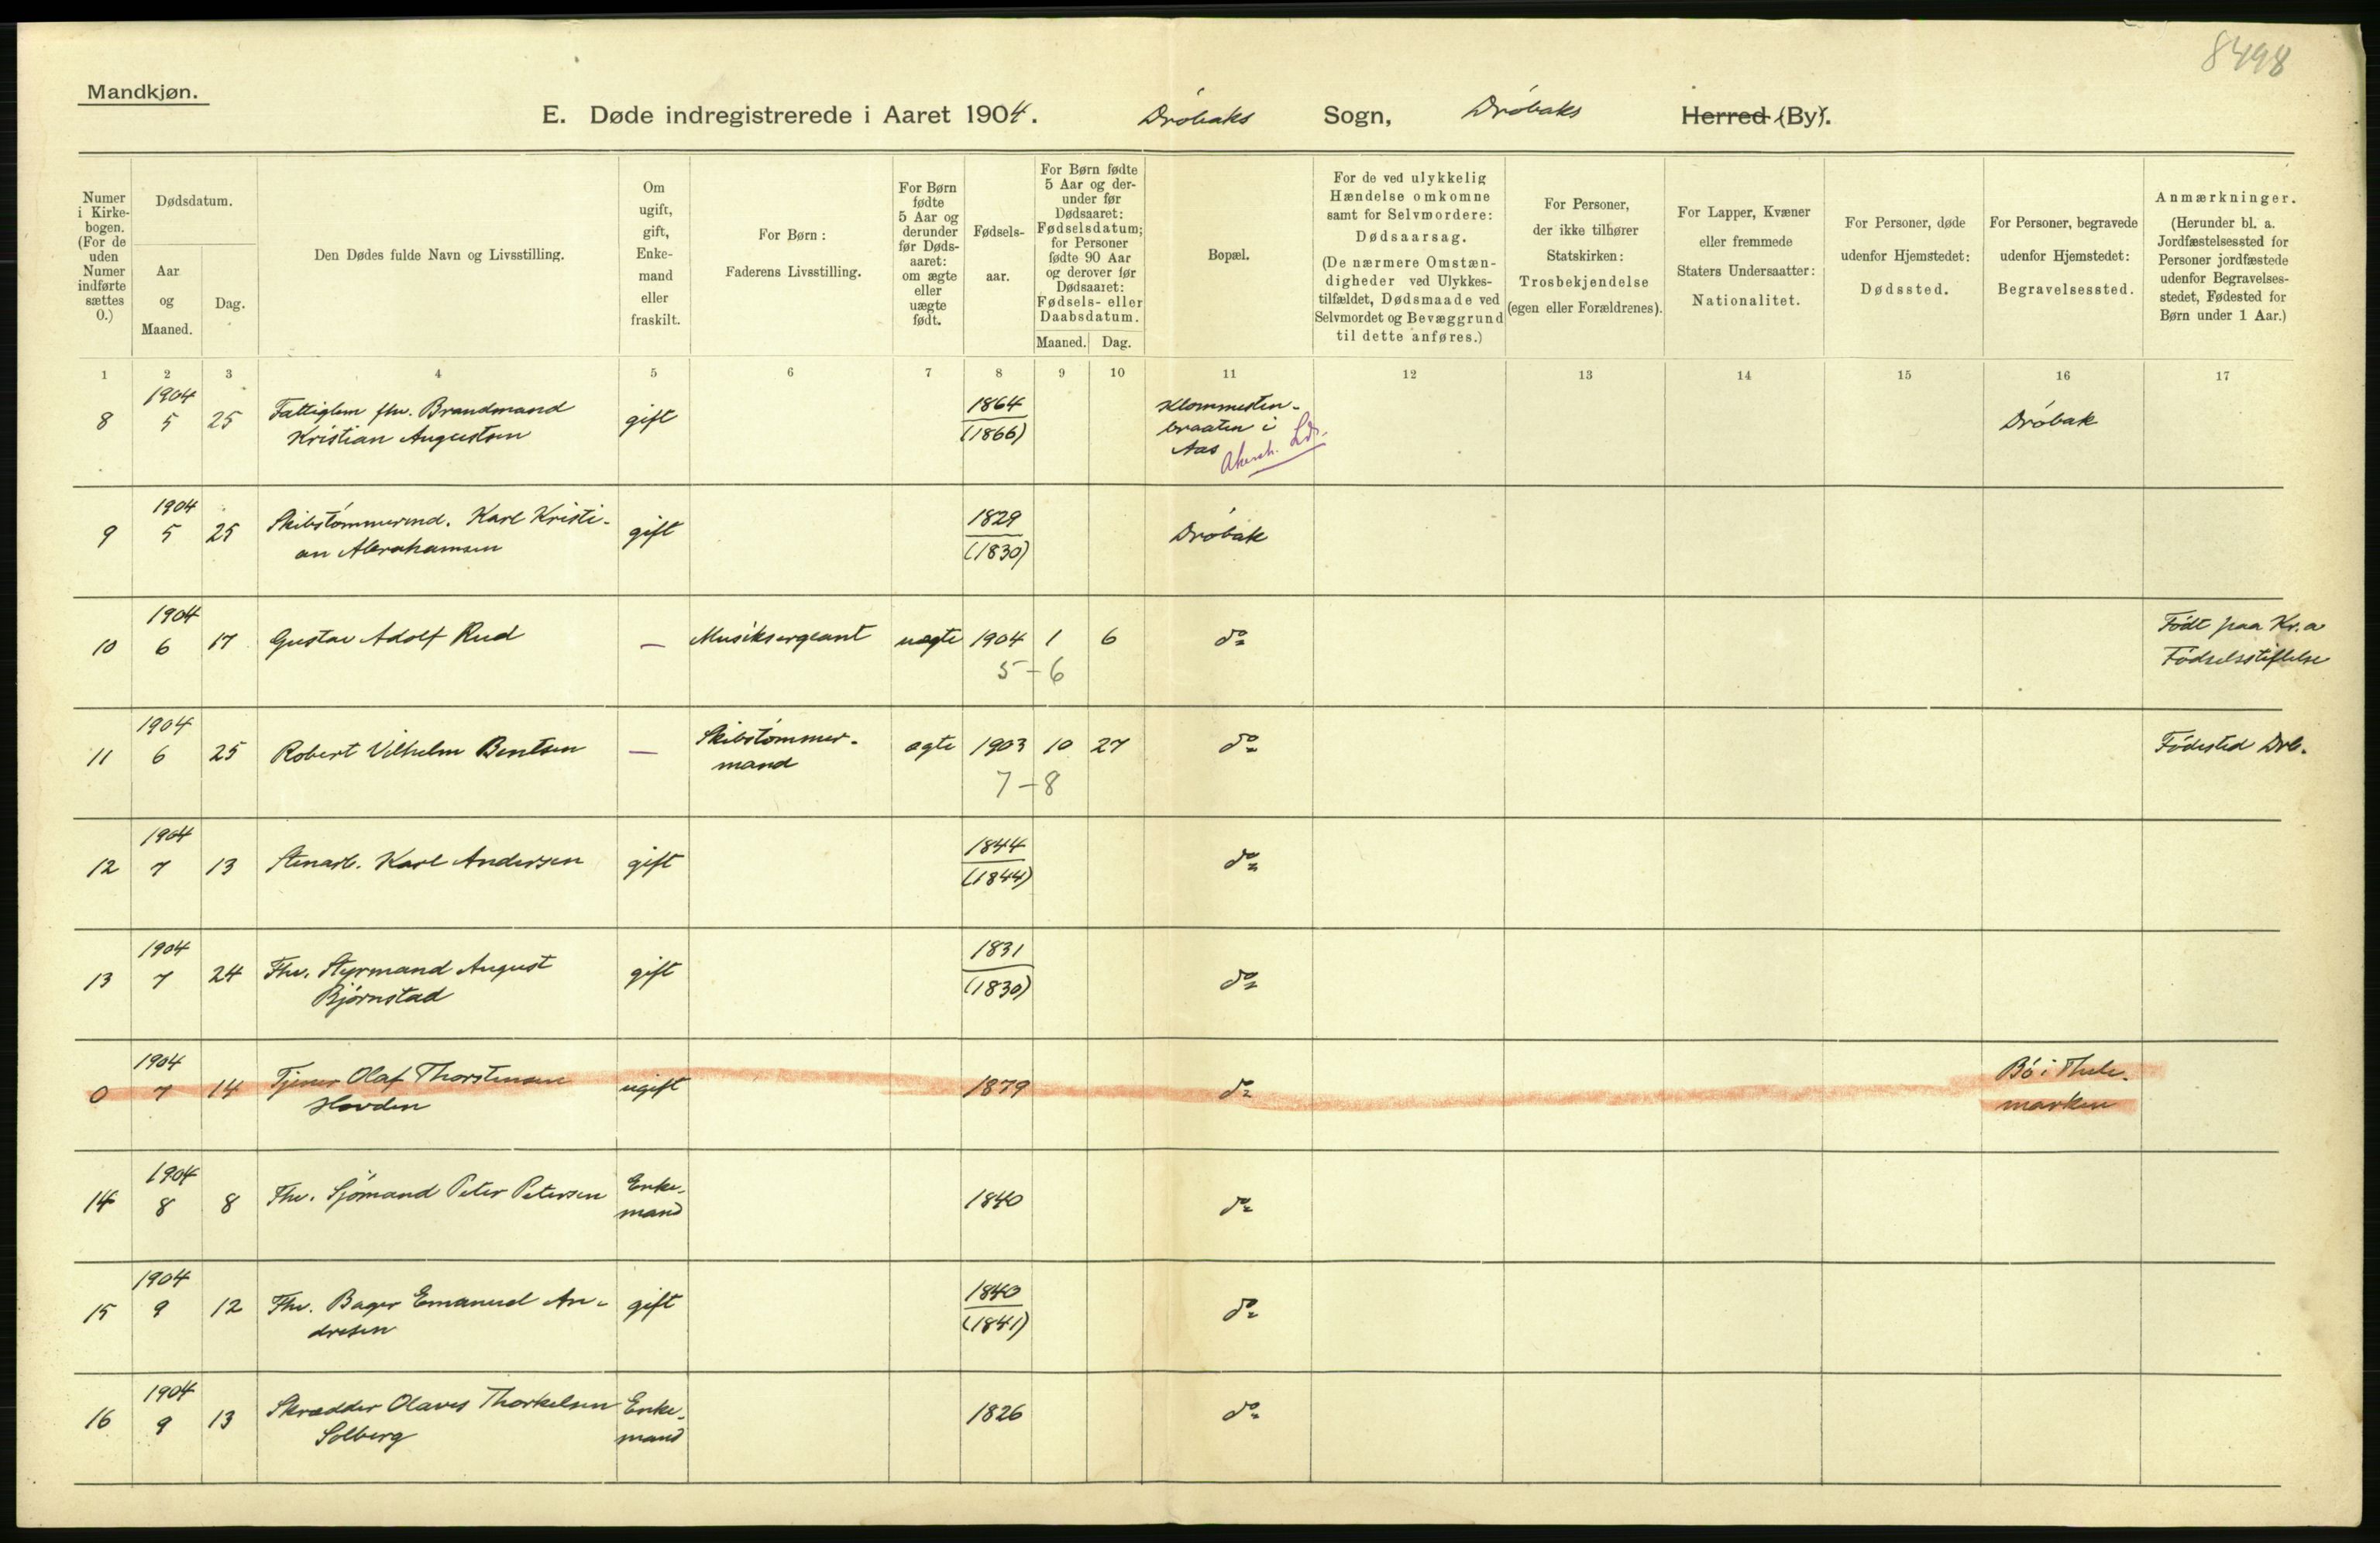 8498
Mandkjøn.
E. Døde indregistrerede i Aaret 1904. Drøbaks Sogn, Drøbaks Herred (By).
Numer
i Kirke-
bogen.
(For de
uden
Numer
indførte
sættes
0.)
Dødsdatum.
Aar
og
Maaned.
Dag.
Den Dødes fulde Navn og Livsstilling.
Om
ugift,
gift,
Enke-
mand
eller
fraskilt.
For Børn:
Faderens Livsstilling.
For Børn
fødte
5 Aar og
derunder
før Døds-
aaret:
om ægte
eller
uægte
født.
Fødsels-
aar.
For Børn fødte
5 Aar og der-
under før
Dødsaaret:
Fødselsdatum;
for Personer
fødte 90 Aar
og derover før
Dødsaaret:
Fødsels- eller
Daabsdatum.
Maaned. Dag.
Bopæl.
For de ved ulykkelig
Hændelse omkomne
samt for Selvmordere:
Dødsaarsag.
(De nærmere Omstæn-
digheder ved Ulykkes-
tilfældet, Dødsmaade ved
Selvmordet og Bevæggrund
til dette anføres.)
For Personer,
der ikke tilhører
Statskirken:
Trosbekjendelse
(egen eller Forældrenes).
For Lapper, Kvæner
eller fremmede
Staters Undersaatter:
Nationalitet.
For Personer, døde
udenfor Hjemstedet:
Dødssted.
For Personer, begravede
udenfor Hjemstedet:
Begravelsessted.
Anmærkninger.
(Herunder bl. a.
Jordfæstelsessted for
Personer jordfæstede
udenfor Begravelses-
stedet, Fødested for
Børn under 1 Aar.)
1 2 3 4 5 6 7 8 9 10 11 12 13 14 15 16 17
1904
8 5 25 Fattiglem fhv. Brandmand gift 1864 Klommesten- Drøbak
Kristian Augustsen (1866) braaten i
Aas Akersh. Lds.
1904
9 5 25 Skibstømmermd. Karl Kristi- gift 1829 Drøbak
an Abrahamsen (1830)
1904
10 6 17 Gustav Adolf Rud — Musiksergeant uægte 1904 1 6 do Født paa Kr.a
5-6 Fødselsstiftelse
1904
11 6 25 Robert Vilhelm Bentsen — Skibstømmer- ægte 1903 10 27 do Fødested Drb.
mand
7-8
1904
12 7 13 Stenarb. Karl Andersen gift 1844 do
(1844)
1904
13 7 24 Fhv. Styrmand August gift 1831 do
Bjørnstad (1830)
1904
0 7 14 Tjener Olaf Thorstensen ugift 1879 do Bø i Thele-
Hovden marken
1904
14 8 8 Fhv. Sjømand Peter Petersen Enke- 1840 do
mand
1904
15 9 12 Fhv. Bager Emanuel An- gift 1840 do
dresen (1841)
1904
16 9 13 Skrædder Olaves Thorkelsen Enke- 1826 do
Solberg mand